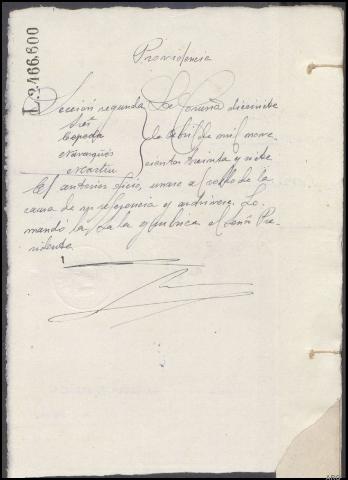 L.2466.600
Providencia
Sección segunda La Coruña diecisiete
Sres
Cepeda de Abril de mil nove-
Navarques cientos treinta y siete
Martin
El anterior oficio, unase al rollo de la
causa de su referencia y archivese. Lo
mandó la Sala y rubrica el Señor Pre-
sidente